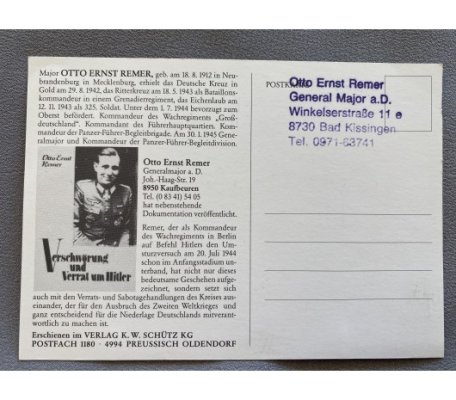 Major OTTO ERNST REMER, geb. am 18. 8. 1912 in Neu-
brandenburg in Mecklenburg, erhielt das Deutsche Kreuz in
Gold am 29. 8. 1942, das Ritterkreuz am 18. 5. 1943 als Bataillons-
kommandeur in einem Grenadierregiment, das Eichenlaub am
12. 11. 1943 als 325. Soldat. Unter dem 1. 7. 1944 bevorzugt zum
Oberst befördert. Kommandeur des Wachregiments „Groß-
deutschland“. Kommandant des Führerhauptquartiers. Kom-
mandeur der Panzer-Führer-Begleitbrigade. Am 30. 1. 1945 Gene-
ralmajor und Kommandeur der Panzer-Führer-Begleitdivision.
Otto Ernst
Remer
Verschwörung
und
Verrat um Hitler
Otto Ernst Remer
Generalmajor a. D.
Joh.-Haag-Str. 19
8950 Kaufbeuren
Tel. (0 83 41) 54 05
hat nebenstehende
Dokumentation veröffentlicht.
Remer, der als Kommandeur
des Wachregiments in Berlin
auf Befehl Hitlers den Um-
sturzversuch am 20. Juli 1944
schon im Anfangsstadium un-
terband, hat nicht nur dieses
bedeutsame Geschehen aufge-
zeichnet, sondern setzt sich
auch mit den Verrats- und Sabotagehandlungen des Kreises aus-
einander, der für den Ausbruch des Zweiten Weltkrieges und
ganz entscheidend für die Niederlage Deutschlands mitverant-
wortlich zu machen ist.
Erschienen im VERLAG K. W. SCHÜTZ KG
POSTFACH 1180 · 4994 PREUSSISCH OLDENDORF
Otto Ernst Remer
General Major a.D.
Winkelserstraße 11 e
8730 Bad Kissingen
Tel. 0971-63741